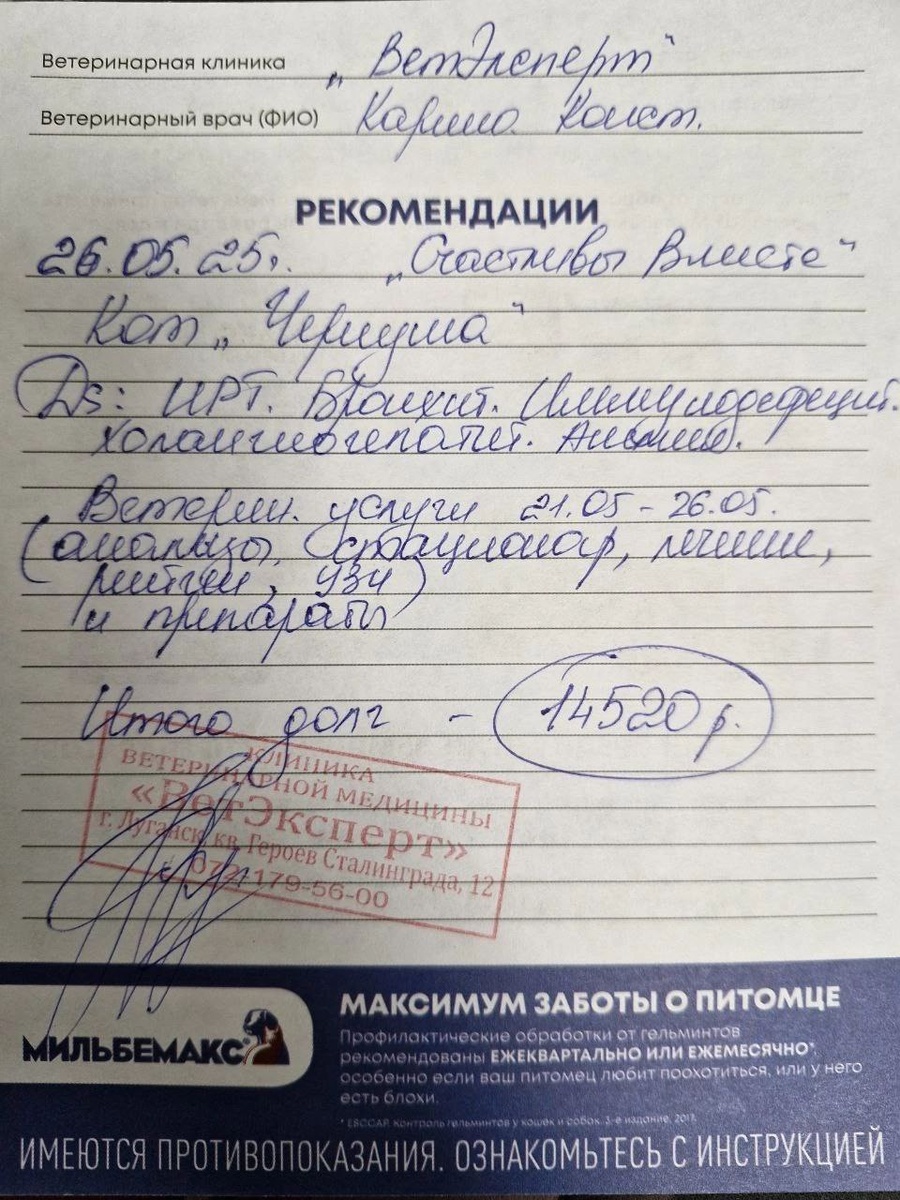 Ветеринарная клиника „ВетЭксперт“
Ветеринарный врач (ФИО) Карина Конст.
РЕКОМЕНДАЦИИ
26.05.25г. „Счастливы Вместе“
Кот „Чернуша“
Ds: ИРТ. Бронхит. Иммунодефицит.
Холангиогепатит. Анемия.
Ветерин. услуги 21.05 - 26.05.
(анализы, стационар, лечение,
рентген, УЗИ)
и препараты
Итого долг - 14520 р.
КЛИНИКА
ВЕТЕРИНАРНОЙ МЕДИЦИНЫ
«ВетЭксперт»
г. Луганск, кв. Героев Сталинграда, 12
072 179-56-00
МИЛЬБЕМАКС®
МАКСИМУМ ЗАБОТЫ О ПИТОМЦЕ
Профилактические обработки от гельминтов
рекомендованы ЕЖЕКВАРТАЛЬНО ИЛИ ЕЖЕМЕСЯЧНО*,
особенно если ваш питомец любит поохотиться, или у него
есть блохи.
* ESCCAP. Контроль гельминтов у кошек и собак. 3-е издание, 2017.
ИМЕЮТСЯ ПРОТИВОПОКАЗАНИЯ. ОЗНАКОМЬТЕСЬ С ИНСТРУКЦИЕЙ